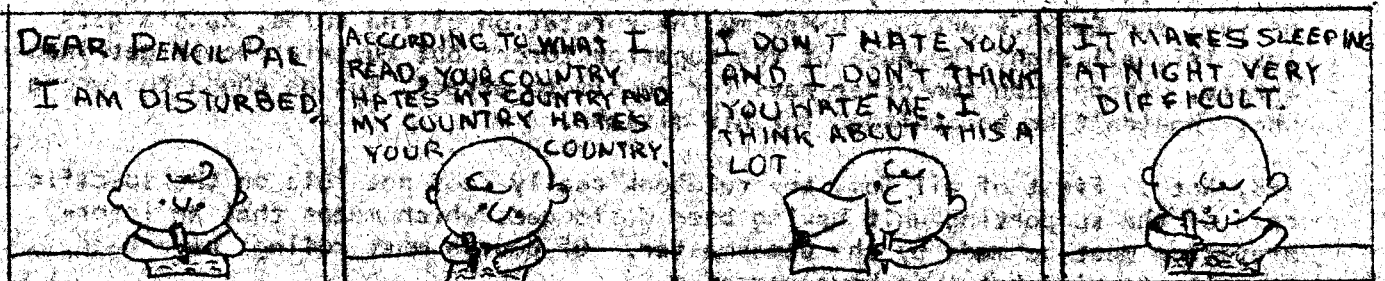 DEAR PENCIL PAL
I AM DISTURBED.
ACCORDING TO WHAT I
READ, YOUR COUNTRY
HATES MY COUNTRY AND
MY COUNTRY HATES
YOUR COUNTRY.
I DON'T HATE YOU,
AND I DON'T THINK
YOU HATE ME. I
THINK ABOUT THIS A
LOT
IT MAKES SLEEPING
AT NIGHT VERY
DIFFICULT.